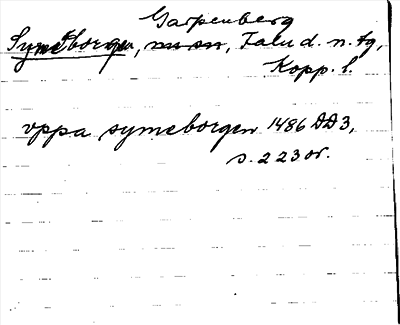 Garpenberg
Symeborgen, nu sn, Falu d. n. tg,
Kopp. l.
vppa symeborgen 1486 DD3,
s. 223 or.